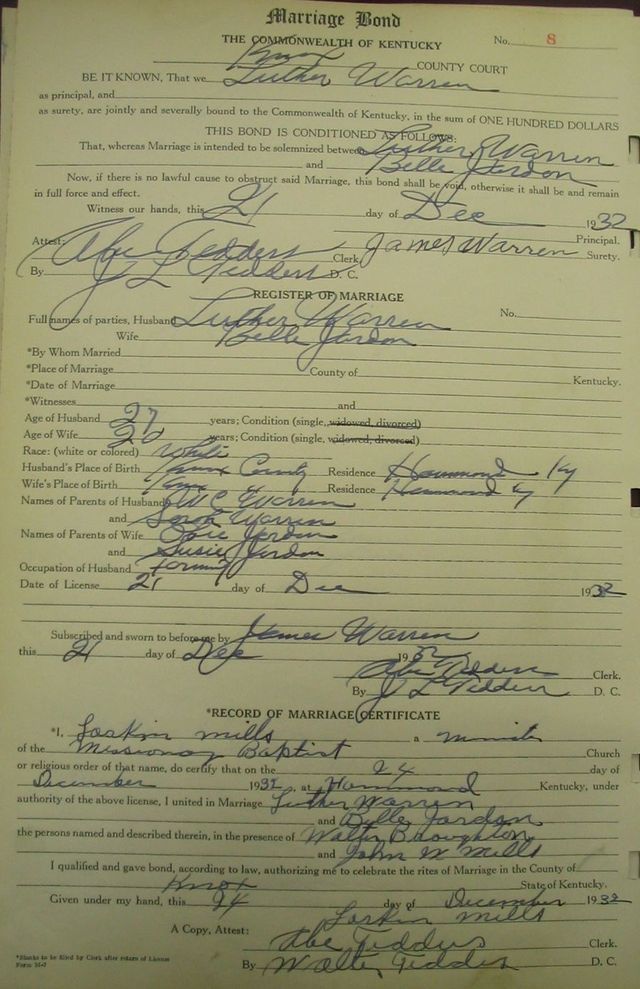 Marriage Bond
THE COMMONWEALTH OF KENTUCKY No. 8
Knox COUNTY COURT
BE IT KNOWN, That we Luther Warren
as principal, and
as surety, are jointly and severally bound to the Commonwealth of Kentucky, in the sum of ONE HUNDRED DOLLARS
THIS BOND IS CONDITIONED AS FOLLOWS:
That, whereas Marriage is intended to be solemnized between Luther Warren
and Belle Jordon
Now, if there is no lawful cause to obstruct said Marriage, this bond shall be void, otherwise it shall be and remain
in full force and effect.
Witness our hands, this 21 day of Dec 1932
Principal.
Attest: Abe Tedders Clerk James Warren Surety.
By J L Tedders D. C.
REGISTER OF MARRIAGE
Full names of parties, Husband Luther Warren No.
Wife Belle Jordon
*By Whom Married
*Place of Marriage County of Kentucky.
*Date of Marriage
*Witnesses and
Age of Husband 27 years; Condition (single, widowed, divorced)
Age of Wife 20 years; Condition (single, widowed, divorced)
Race: (white or colored) White
Husband's Place of Birth Knox County Residence Hammond Ky
Wife's Place of Birth Knox Residence Hammond Ky
Names of Parents of Husband W C Warren
and Sarah Warren
Names of Parents of Wife Obie Jordon
and Susie Jordon
Occupation of Husband Farming
Date of License 21 day of Dec 1932
Subscribed and sworn to before me by James Warren
this 21 day of Dec 1932
Abe Tedders Clerk.
By J L Tedders D. C.
*RECORD OF MARRIAGE CERTIFICATE
*I, Larkin Mills a Minister
of the Missionary Baptist Church
or religious order of that name, do certify that on the 24 day of
December 1932, at Hammond Kentucky, under
authority of the above license, I united in Marriage Luther Warren
and Belle Jordon
the persons named and described therein, in the presence of Walter Broughton
and John W Mills
I qualified and gave bond, according to law, authorizing me to celebrate the rites of Marriage in the County of
Knox State of Kentucky.
Given under my hand, this 24 day of December 1932
Larkin Mills
A Copy, Attest: Abe Tedders Clerk.
*Blanks to be filled by Clerk after return of License
By Walter Tedders D. C.